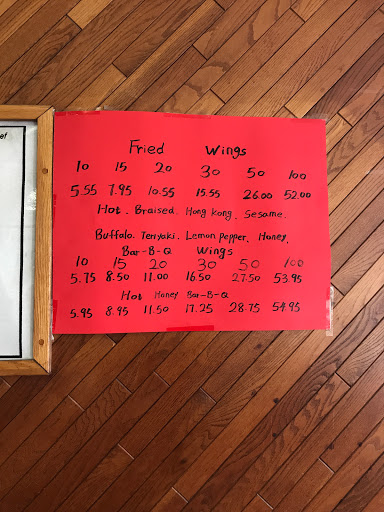 ef
Fried Wings
10 15 20 30 50 100
5.55 7.95 10.55 15.55 26.00 52.00
Hot. Braised. Hong kong. Sesame.
Buffalo. Teriyaki. Lemon pepper. Honey.
Bar-B-Q Wings
10 15 20 30 50 100
5.75 8.50 11.00 16.50 27.50 53.95
Hot Honey Bar-B-Q
5.95 8.95 11.50 17.25 28.75 54.95